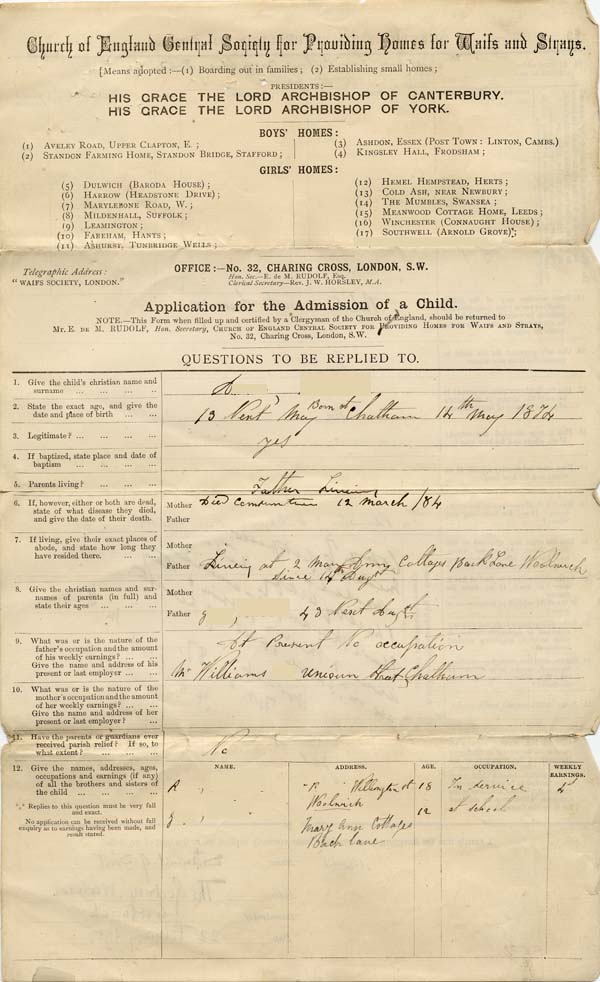 Church of England Central Society for Providing Homes for Waifs and Strays.
[Means adopted :—(1) Boarding out in families; (2) Establishing small homes;
PRESIDENTS:—
HIS GRACE THE LORD ARCHBISHOP OF CANTERBURY.
HIS GRACE THE LORD ARCHBISHOP OF YORK.
BOYS' HOMES:
(1) AVELEY ROAD, UPPER CLAPTON, E.;
(2) STANDON FARMING HOME, STANDON BRIDGE, STAFFORD;
(3) ASHDON, ESSEX (POST TOWN: LINTON, CAMBS.)
(4) KINGSLEY HALL, FRODSHAM;
GIRLS' HOMES:
(5) DULWICH (BARODA HOUSE);
(6) HARROW (HEADSTONE DRIVE);
(7) MARYLEBONE ROAD, W.;
(8) MILDENHALL, SUFFOLK;
(9) LEAMINGTON;
(10) FAREHAM, HANTS;
(11) ASHURST, TUNBRIDGE WELLS;
(12) HEMEL HEMPSTEAD, HERTS;
(13) COLD ASH, NEAR NEWBURY;
(14) THE MUMBLES, SWANSEA;
(15) MEANWOOD COTTAGE HOME, LEEDS;
(16) WINCHESTER (CONNAUGHT HOUSE);
(17) SOUTHWELL (ARNOLD GROVE);
Telegraphic Address:
"WAIFS SOCIETY, LONDON."
OFFICE:—No. 32, CHARING CROSS, LONDON, S.W.
Hon. Sec.—E. de M. RUDOLF, Esq.
Clerical Secretary—Rev. J. W. HORSLEY, M.A.
Application for the Admission of a Child.
NOTE.—This Form when filled up and certified by a Clergyman of the Church of England, should be returned to
Mr. E. DE M. RUDOLF, Hon. Secretary, CHURCH OF ENGLAND CENTRAL SOCIETY FOR PROVIDING HOMES FOR WAIFS AND STRAYS,
No. 32, Charing Cross, London, S.W.
QUESTIONS TO BE REPLIED TO.
1. Give the child's christian name and
surname ... ... ...
2. State the exact age, and give the
date and place of birth ... ...
13 Next May Born at Chatham 14th May 1874
3. Legitimate? ... ... ... ...
yes
4. If baptized, state place and date of
baptism ... ... ... ...
5. Parents living? ... ... ...
Father Living
6. If, however, either or both are dead,
state of what disease they died,
and give the date of their death.
Mother Died Consumption 12 March /84
Father
7. If living, give their exact places of
abode, and state how long they
have resided there. ... ...
Mother
Father Living at 2 Mary Ann Cottages Back Lane Woolwich
Since
8. Give the christian names and sur-
names of parents (in full) and
state their ages ... ... ...
Mother
Father 43 Next
9. What was or is the nature of the
father's occupation and the amount
of his weekly earnings? ... ...
Give the name and address of his
present or last employer? ...
At Present No occupation
Mr Williams Chatham
10. What was or is the nature of the
mother's occupation and the amount
of her weekly earnings? ... ...
Give the name and address of her
present or last employer? ...
11. Have the parents or guardians ever
received parish relief? If so, to
what extent? ... ... ...
No
12. Give the names, addresses, ages,
occupations and earnings (if any)
of all the brothers and sisters of
the child ... ... ... ...
*** Replies to this question must be very full
and exact.
No application can be received without full
enquiry as to earnings having been made, and
result stated.
NAME. ADDRESS. AGE. OCCUPATION. WEEKLY EARNINGS.
Wellington st 18 In service
Woolwich
12 at school
Mary Ann Cottages
Back Lane